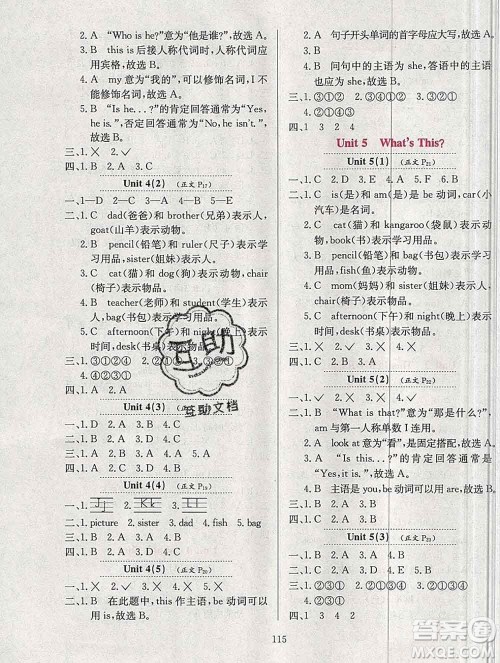 2. A “Who is he?”意为“他是谁?”，故选 A。
3. B this is 后接人称代词时，人称代词应用宾格，故选 B。
4. A my 意为“我的”，可以修饰名词，I 不能修饰名词，故选 A。
5. B “Is he...?”的肯定回答通常为“Yes, he is.”，否定回答通常为“No, he isn't.”，故选 B。
三、1. ✕ 2. ✓
四、1. B 2. A 3. C
Unit 4(2) (正文 P17)
一、1. D 2. A 3. B 4. C
二、1. C dad(爸爸)和 brother(兄弟)表示人，goat(山羊)表示动物。
2. B pencil(铅笔)和 ruler(尺子)表示学习用品，sister(姐妹)表示人。
3. C cat(猫)和 dog(狗)表示动物，chair(椅子)表示物品。
4. B teacher(老师)和 student(学生)表示人，bag(书包)表示学习用品。
5. C afternoon(下午)和 night(晚上)表示时间，desk(书桌)表示物品。
三、1. ③①②④ 2. ①③②④ 3.
4. ④②③①
Unit 4(3)
一、1. D 2. A 3. B 4. C
二、1. ✓ 2. ✕ 3. ✕ 4. ✓
三、1. D 2. A 3. C 4. B
Unit 4(4) (正文 P19)
一、Jj Kk Ll
二、1. picture 2. sister 3. dad 4. fish
三、1. ✕ 2. ✕ 3. ✓ 4. ✕ 5. ✕
四、1. B 2. A 3. D 4. C
Unit 4(5) (正文 P20)
一、1. ✕ 2. ✓ 3. ✓ 4. ✕ 5. ✕
二、1. B 在此题中，this 作主语，be 动词可以用 is，故选 B。
2. A 句子开头单词的首字母应大写，故选 A。
3. B 问句中的主语为 she，答语中的主语也为 she，故选 B。
三、1. ③①② 2. ①③②
四、1 3 2 4
Unit 5 What's This?
Unit 5(1) (正文 P21)
一、1. C 2. D 3. E 4. A 5. B
二、1. C is(是)和 am(是)是 be 动词，car(小汽车)是名词。
2. A cat(猫)和 kangaroo(袋鼠)表示动物，book(书)表示学习用品。
3. B pencil(铅笔)和 bag(书包)表示学习用品，fish(鱼)表示动物。
4. C mom(妈妈)和 sister(姐妹)表示人，chair(椅子)表示物品。
5. C afternoon(下午)和 night(晚上)表示时间，desk(书桌)表示物品。
三、1. A 2. B 3. A 4. B
Unit 5(2) (正文 P22)
一、1. ✕ 2. ✓ 3. ✕ 4. ✓
二、1. B “What is that?”意为“那是什么?”，am 与第一人称单数 I 连用。
2. A look at 意为“看”，是固定搭配，故选 A。
3. A “Is this...?”的肯定回答通常为“Yes, it is.”，故选 A。
4. B 主语是 you，be 动词可以用 are，故选 B。
三、1. ①③②④ 2. ①③②
四、1. A 2. B 3. A 4. B
Unit 5(3) (正文 P23)
一、1. D 2. A 3. C 4. B
二、1. B 2. A 3. A 4. B
三、1. ②③①④ 2. ③①②④ 3. ①③④②
四、1 3 4 2
互助
互助文档
115
答案圈
MXQE.COM